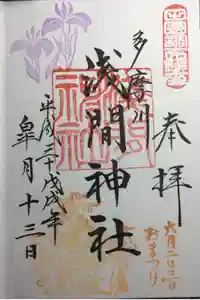 奉拝
多摩川
浅間神社
平成三十戊戌年
皐月十三日
六月二日三日
おまつり